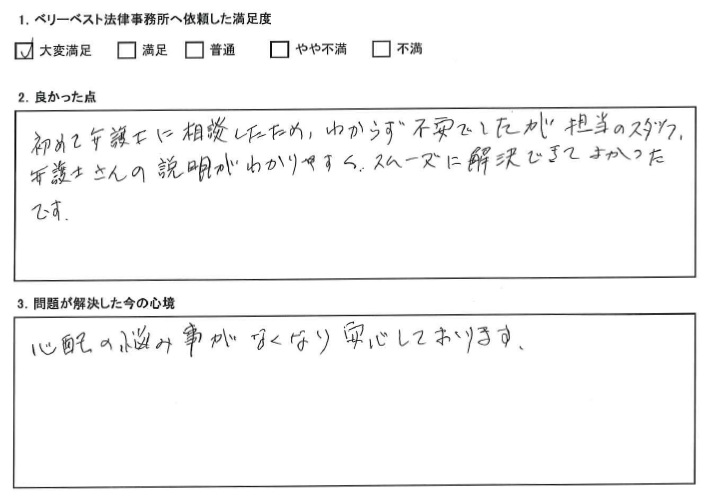 1. ベリーベスト法律事務所へ依頼した満足度
☑ 大変満足 □ 満足 □ 普通 □ やや不満 □ 不満
2. 良かった点
初めて弁護士に相談したため, わからず不安でしたが担当のスタッフ,
弁護士さんの説明がわかりやすく. スムーズに解決できてよかった
です.
3. 問題が解決した今の心境
心配の悩み事がなくなり安心しております.